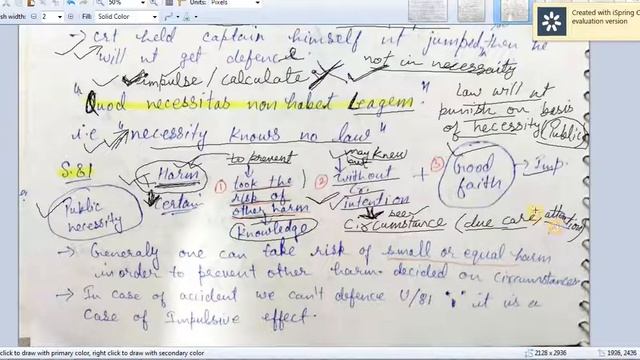 ush width: 2 Fill: Solid Color Units: Pixels
Created with iSpring
evaluation version
→ crt held captain himself nt jumped then he
will nt get defence
not in necessity"
impulse / calculate
"Quod necessitas non habet Leagem."
law will nt
punish on basis
of necessity (Public
i.e "necessity knows no law"
S.81
Harm
Certain
Public
necessity
to prevent
① took the
risk of
other harm
Knowledge
may knew
but
② without
intention
see
Circumstance (due care + attention)
+ ③ Good
faith
→ Imp.
→ Generaly one can take risk of small or equal harm
inorder to prevent other harm. decided on circumstances
→ In case of accident we can't defence U/81 it is a
case of Impulsive effect.
click to draw with primary color, right click to draw with secondary color
2128 x 2936
1936, 2436